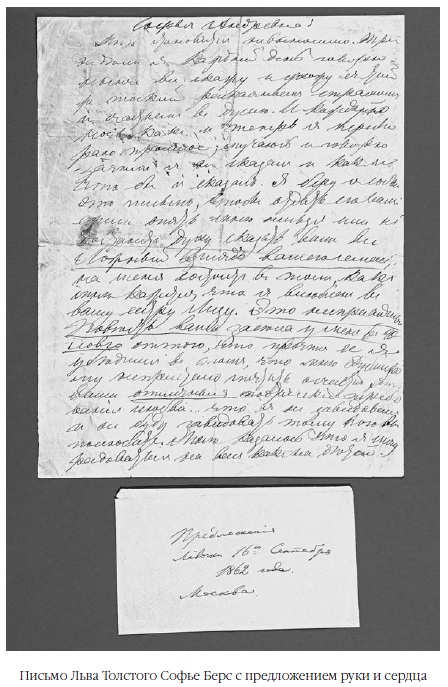 Софья Андревна!
Мне становится невыносимо. Три
недели я каждый день говорю
нынче все скажу и ухожу с той
же тоской раскаянием страхом
и счастьем в душе. И каждую
ночь, как и теперь я переби
раю прошлое, мучаюсь и говорю
зачем я не сказал и как и
что бы я сказал. Я беру с собой
это письмо, чтобы отдать его вам
ежели опять мне нельзя или не
достанет духу сказать вам все
Ложный взгляд вашего семейс
на меня состоит в том, как
мне кажется, что я влюблен в
вашу сестру Лизу. Это несправедливо
Повесть ваша засела у меня в го
лове оттого, что прочтя ее я
убедился в том, что мне Дублицко
му не пристало мечтать о счастьи, что
ваши отличные поэтические требо
вания любви... что я не завидовал
и не буду завидовать тому кого вы
полюбите. Мне казалось что я могу
радоваться на вас как на детей.
Предложение
Лёвочки 16го Сентября
1862 года.
Москва.
Письмо Льва Толстого Софье Берс с предложением руки и сердца